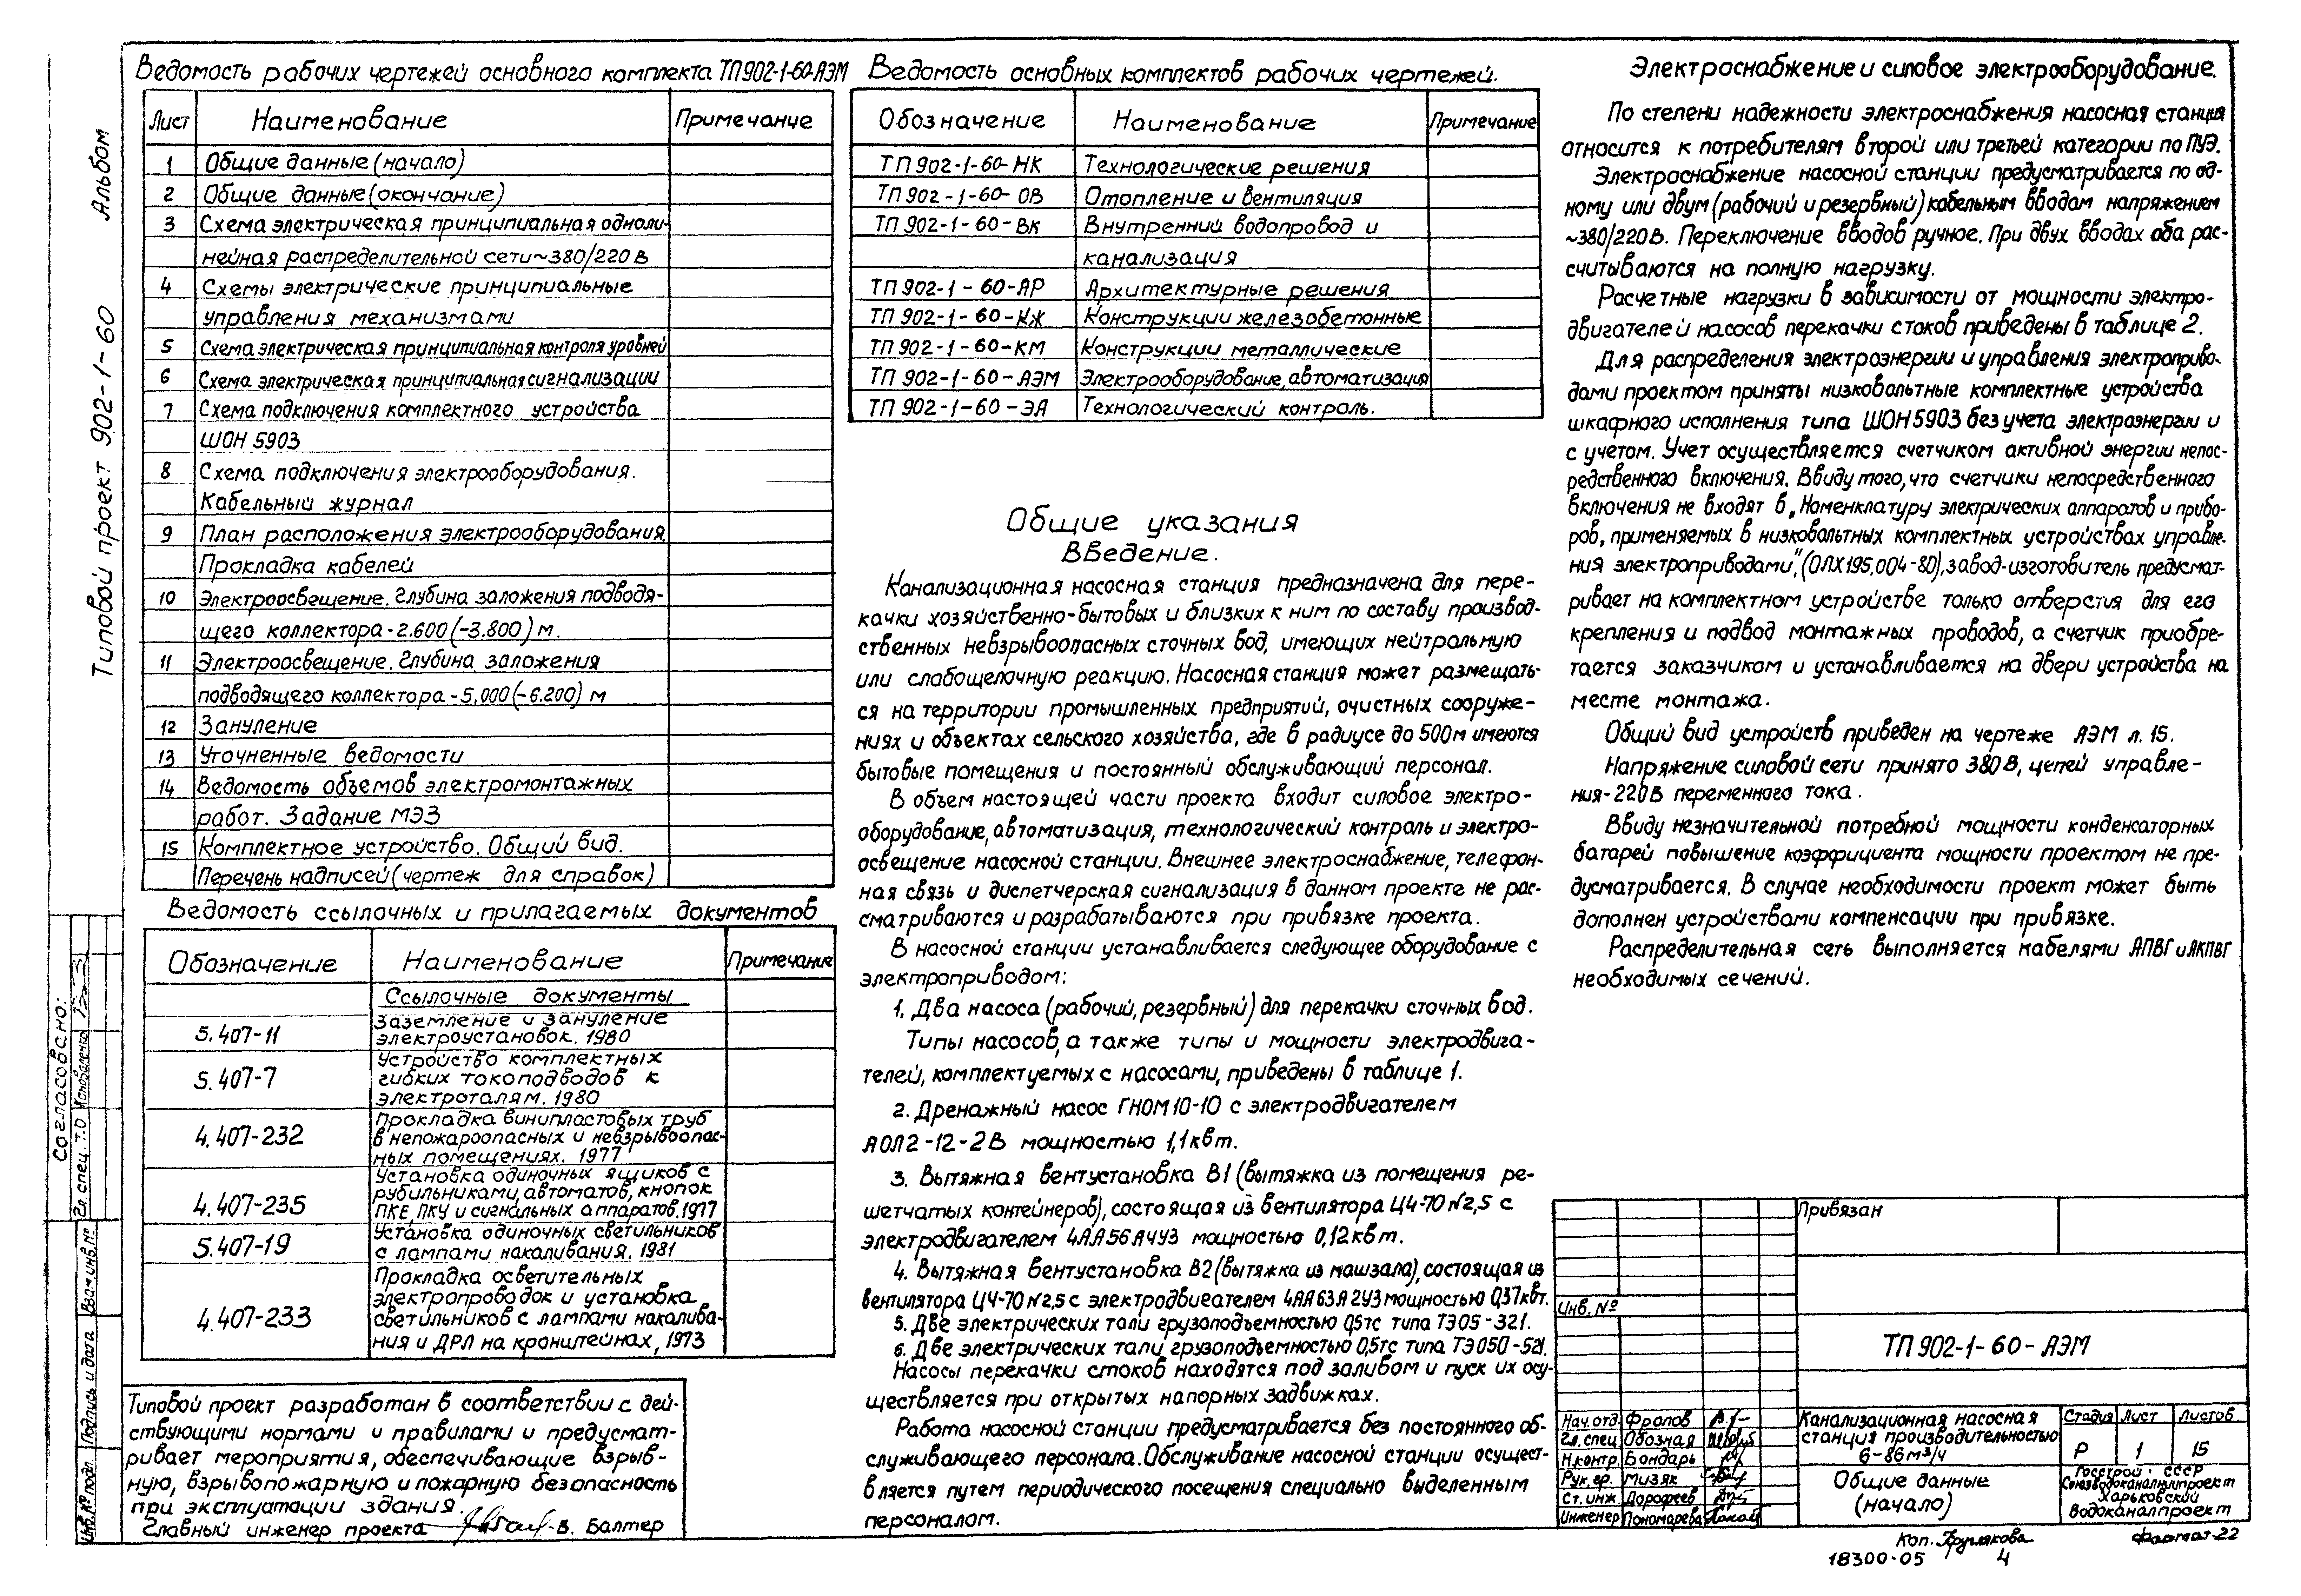 Альбом
Типовой проект 902-1-60
Ведомость рабочих чертежей основного комплекта ТП902-1-60-АЭМ
Лист Наименование Примечание
1 Общие данные (начало)
2 Общие данные (окончание)
3 Схема электрическая принципиальная одноли-
нейная распределительной сети ~380/220 В
4 Схемы электрические принципиальные
управления механизмами
5 Схема электрическая принципиальная контроля уровней
6 Схема электрическая принципиальная сигнализации
7 Схема подключения комплектного устройства
ШОН 5903
8 Схема подключения электрооборудования.
Кабельный журнал
9 План расположения электрооборудования.
Прокладка кабелей
10 Электроосвещение. Глубина заложения подводя-
щего коллектора -2.600 (-3.800) м.
11 Электроосвещение. Глубина заложения
подводящего коллектора -5,000 (-6.200) м
12 Зануление
13 Уточненные ведомости
14 Ведомость объемов электромонтажных
работ. Задание МЭЗ
15 Комплектное устройство. Общий вид.
Перечень надписей (чертеж для справок)
Ведомость ссылочных и прилагаемых документов
Обозначение Наименование Примечание
Ссылочные документы
5.407-11 Заземление и зануление
электроустановок. 1980
5.407-7 Устройство комплектных
гибких токоподводов к
электроталям. 1980
4.407-232 Прокладка винипластовых труб
в непожароопасных и невзрывоопас-
ных помещениях. 1977
4.407-235 Установка одиночных ящиков с
рубильниками, автоматов, кнопок
ПКЕ, ПКУ и сигнальных аппаратов. 1977
5.407-19 Установка одиночных светильников
с лампами накаливания. 1981
4.407-233 Прокладка осветительных
электропроводок и установка
светильников с лампами накалива-
ния и ДРЛ на кронштейнах, 1973
Типовой проект разработан в соответствии с дей-
ствующими нормами и правилами и предусмат-
ривает мероприятия, обеспечивающие взрыв-
ную, взрывопожарную и пожарную безопасность
при эксплуатации здания.
Главный инженер проекта В. Балтер
Ведомость основных комплектов рабочих чертежей.
Обозначение Наименование Примечание
ТП 902-1-60-НК Технологические решения
ТП 902-1-60-ОВ Отопление и вентиляция
ТП 902-1-60-ВК Внутренний водопровод и
канализация
ТП 902-1-60-АР Архитектурные решения
ТП 902-1-60-КЖ Конструкции железобетонные
ТП 902-1-60-КМ Конструкции металлические
ТП 902-1-60-АЭМ Электрооборудование, автоматизация
ТП 902-1-60-ЭА Технологический контроль.
Общие указания
Введение.
Канализационная насосная станция предназначена для пере-
качки хозяйственно-бытовых и близких к ним по составу производ-
ственных невзрывоопасных сточных вод, имеющих нейтральную
или слабощелочную реакцию. Насосная станция может размещать-
ся на территории промышленных предприятий, очистных сооруже-
ниях и объектах сельского хозяйства, где в радиусе до 500м имеются
бытовые помещения и постоянный обслуживающий персонал.
В объем настоящей части проекта входит силовое электро-
оборудование, автоматизация, технологический контроль и электро-
освещение насосной станции. Внешнее электроснабжение, телефон-
ная связь и диспетчерская сигнализация в данном проекте не рас-
сматриваются и разрабатываются при привязке проекта.
В насосной станции устанавливается следующее оборудование с
электроприводом:
1. Два насоса (рабочий, резервный) для перекачки сточных вод.
Типы насосов, а также типы и мощности электродвига-
телей, комплектуемых с насосами, приведены в таблице 1.
2. Дренажный насос ГНОМ 10-10 с электродвигателем
АОЛ2-12-2В мощностью 1,1 квт.
3. Вытяжная вентустановка В1 (вытяжка из помещения ре-
шетчатых контейнеров), состоящая из вентилятора Ц4-70 N2,5 с
электродвигателем 4АА56А4У3 мощностью 0,12 квт.
4. Вытяжная вентустановка В2 (вытяжка из машзала), состоящая из
вентилятора Ц4-70 N2,5 с электродвигателем 4АА63А2У3 мощностью 0,37 квт.
5. Две электрических тали грузоподъемностью 0,5тс типа ТЭ05-321.
6. Две электрических тали грузоподъемностью 0,5тс типа ТЭ050-521.
Насосы перекачки стоков находятся под заливом и пуск их осу-
ществляется при открытых напорных задвижках.
Работа насосной станции предусматривается без постоянного об-
служивающего персонала. Обслуживание насосной станции осущест-
вляется путем периодического посещения специально выделенным
персоналом.
Электроснабжение и силовое электрооборудование.
По степени надежности электроснабжения насосная станция
относится к потребителям второй или третьей категории по ПУЭ.
Электроснабжение насосной станции предусматривается по од-
ному или двум (рабочий и резервный) кабельным вводам напряжением
~380/220 В. Переключение вводов ручное. При двух вводах оба рас-
считываются на полную нагрузку.
Расчетные нагрузки в зависимости от мощности электро-
двигателей насосов перекачки стоков приведены в таблице 2.
Для распределения электроэнергии и управления электроприво-
дами проектом приняты низковольтные комплектные устройства
шкафного исполнения типа ШОН5903 без учета электроэнергии и
с учетом. Учет осуществляется счетчиком активной энергии непос-
редственного включения. Ввиду того, что счетчики непосредственного
включения не входят в „Номенклатуру электрических аппаратов и прибо-
ров, применяемых в низковольтных комплектных устройствах управле-
ния электроприводами", (ОЛХ195.004-80), завод-изготовитель предусмат-
ривает на комплектном устройстве только отверстия для его
крепления и подвод монтажных проводов, а счетчик приобре-
тается заказчиком и устанавливается на двери устройства на
месте монтажа.
Общий вид устройств приведен на чертеже АЭМ л. 15.
Напряжение силовой сети принято 380 В, цепей управле-
ния-220 В переменного тока.
Ввиду незначительной потребной мощности конденсаторных
батарей повышение коэффициента мощности проектом не пре-
дусматривается. В случае необходимости проект может быть
дополнен устройствами компенсации при привязке.
Распределительная сеть выполняется кабелями АПВГ и АКПВГ
необходимых сечений.
Привязан
Инв. №
ТП 902-1-60-АЭМ
Нач. отд. Фролов
Гл. спец. Обозная
Н.контр. Бондарь
Рук. гр. Мизяк
Ст. инж. Дорофеев
Инженер Пономарева
Канализационная насосная
станция производительностью
6-86 м³/ч
Стадия Лист Листов
Р 1 15
Общие данные
(начало)
Госстрой СССР
Союзводоканалниипроект
Харьковский
Водоканалпроект
Коп. Круглякова
Формат 22
18300-05 4
Согласовано:
Гл. спец. Т.О Коноваленко
Взам. инв. №
Подпись и дата
Инв. № подл.